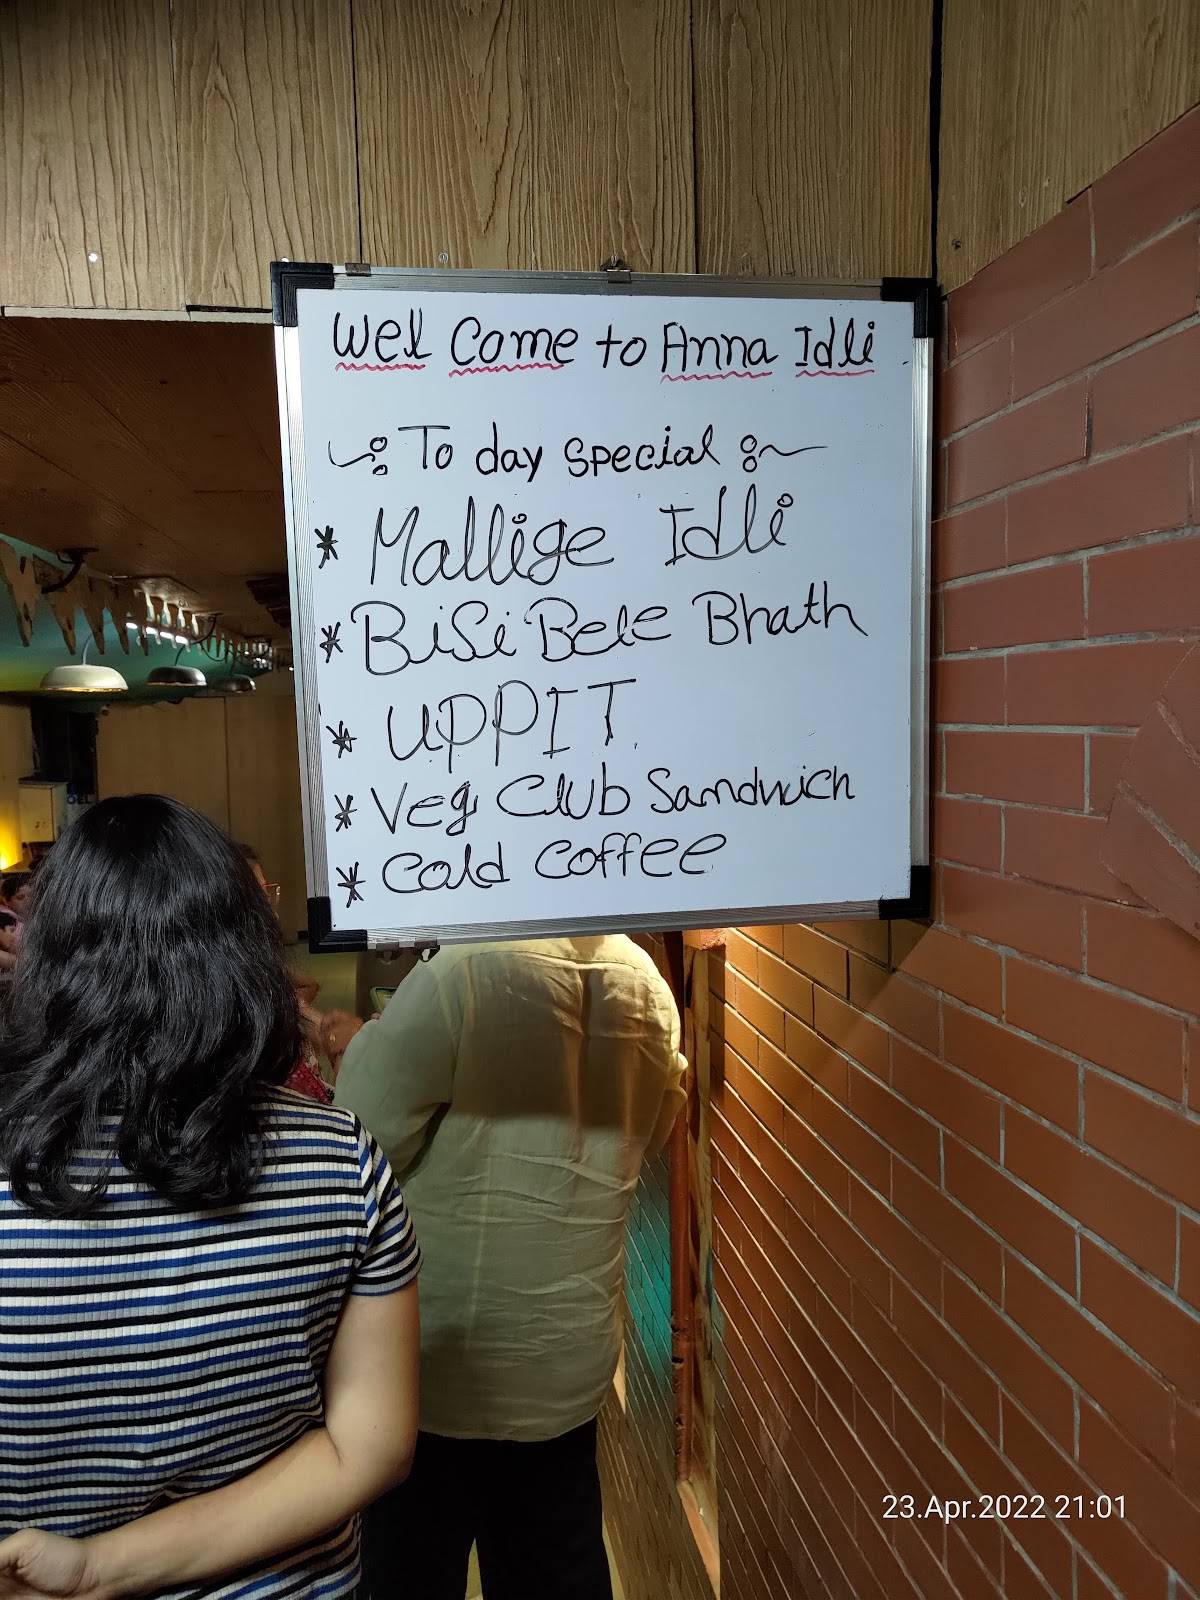 Wel Come to Anna Idli
To day special
* Mallige Idli
* BiSi Bele Bhath
* UPPIT
* Veg Club Sandwich
* Cold Coffee
OEL
23.Apr.2022 21:01